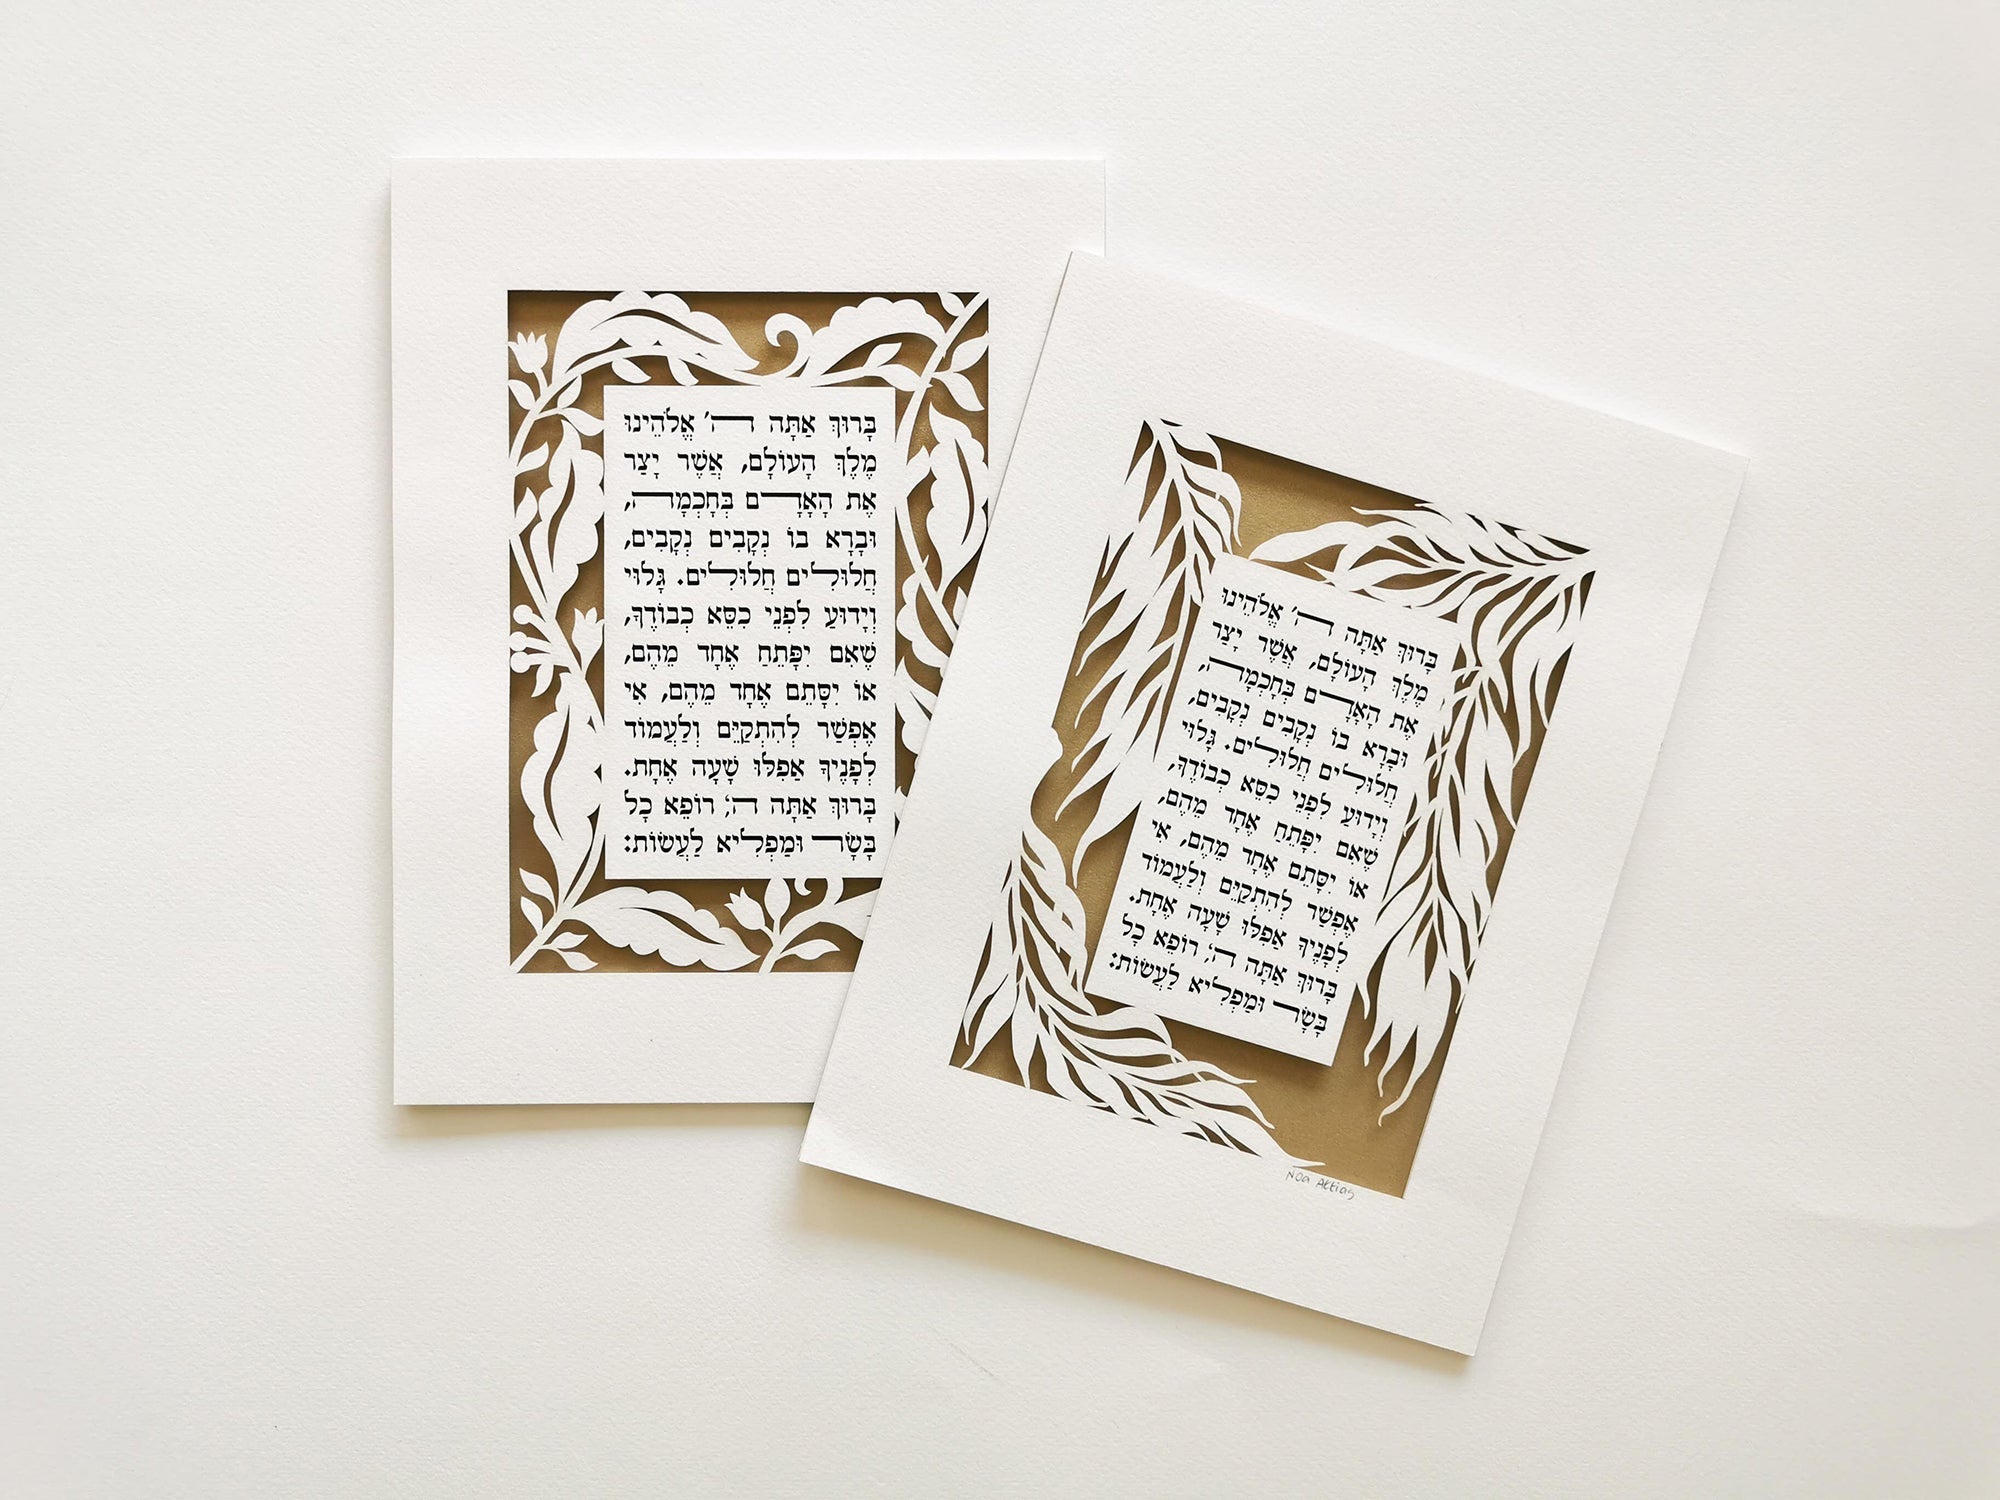 בָּרוּךְ אַתָּה ה׳ אֱלֹהֵינוּ
מֶלֶךְ הָעוֹלָם, אֲשֶׁר יָצַר
אֶת הָאָדָם בְּחָכְמָה,
וּבָרָא בוֹ נְקָבִים נְקָבִים,
חֲלוּלִים חֲלוּלִים. גָּלוּי
וְיָדוּעַ לִפְנֵי כִסֵּא כְבוֹדֶךָ,
שֶׁאִם יִפָּתֵחַ אֶחָד מֵהֶם,
אוֹ יִסָּתֵם אֶחָד מֵהֶם, אִי
אֶפְשַׁר לְהִתְקַיֵּם וְלַעֲמוֹד
לְפָנֶיךָ אַפִלּוּ שָׁעָה אֶחָת.
בָּרוּךְ אַתָּה ה׳, רוֹפֵא כָל
בָּשָׂר וּמַפְלִיא לַעֲשׂוֹת:
בָּרוּךְ אַתָּה ה׳ אֱלֹהֵינוּ
מֶלֶךְ הָעוֹלָם, אֲשֶׁר יָצַר
אֶת הָאָדָם בְּחָכְמָה,
וּבָרָא בוֹ נְקָבִים נְקָבִים,
חֲלוּלִים חֲלוּלִים. גָּלוּי
וְיָדוּעַ לִפְנֵי כִסֵּא כְבוֹדֶךָ,
שֶׁאִם יִפָּתֵחַ אֶחָד מֵהֶם,
אוֹ יִסָּתֵם אֶחָד מֵהֶם, אִי
אֶפְשַׁר לְהִתְקַיֵּם וְלַעֲמוֹד
לְפָנֶיךָ אַפִלּוּ שָׁעָה אֶחָת.
בָּרוּךְ אַתָּה ה׳, רוֹפֵא כָל
בָּשָׂר וּמַפְלִיא לַעֲשׂוֹת:
Noa Attias